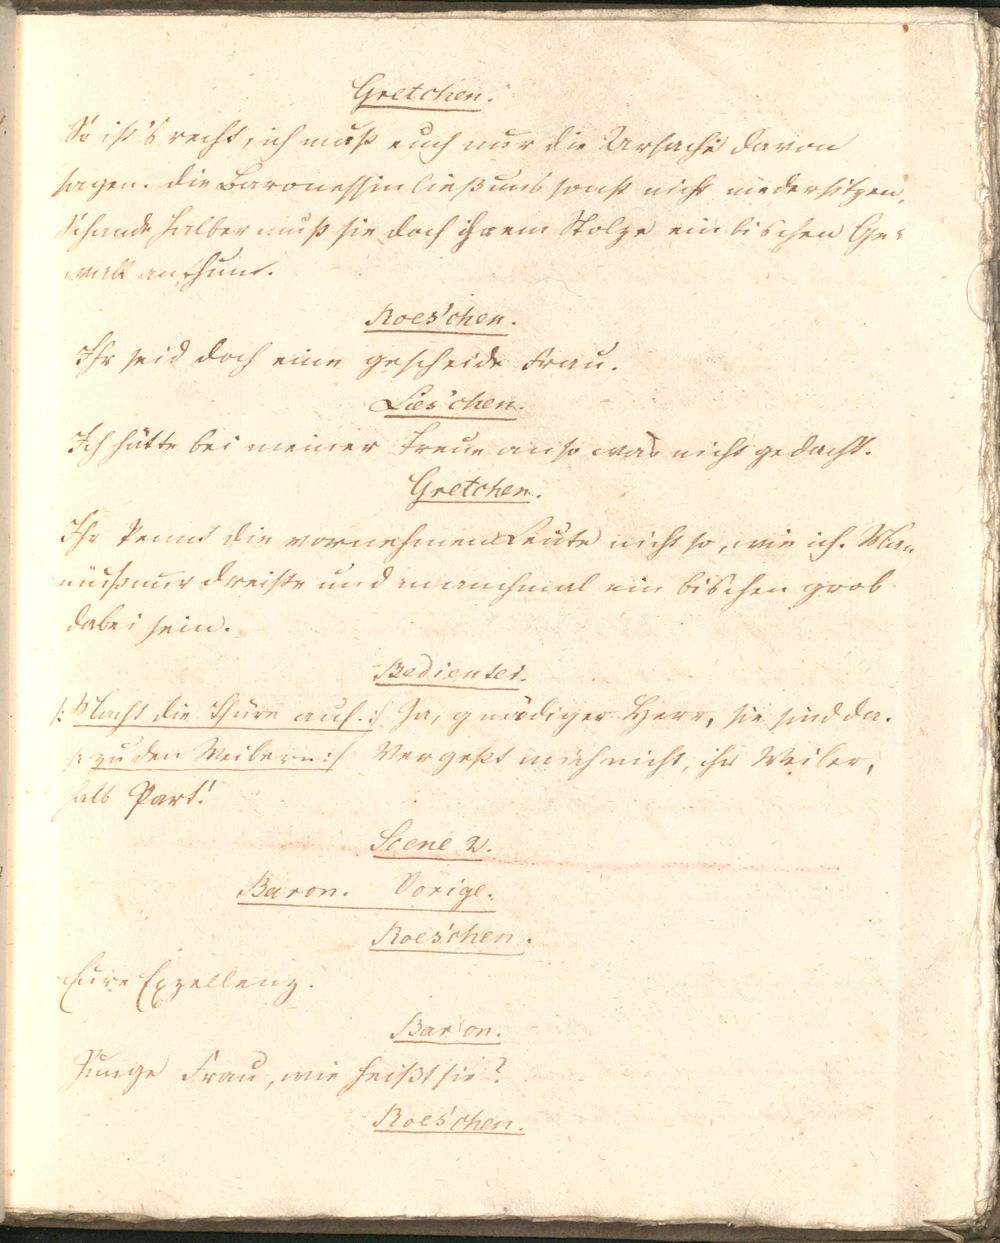 Gretchen.
So ist's recht, ich muß euch nur die Ursache davon
sagen. die Baronessin ließ uns sonst nicht niedersitzen,
Schande halber muß sie doch ihrem Stolze ein bischen Ge-
walt anthun.
Roes'chen.
Ihr seid doch eine gescheide Frau.
Lies'chen.
Ich hätte bei meiner Treue an so was nicht gedacht.
Gretchen.
Ihr kennt die vornehmen Leute nicht so, wie ich. Man
muß nur dreiste und manchmal ein bischen grob
dabei sein.
Bedienter.
/: Macht die Thüre auf. :/ Ja, gnädiger Herr, sie sind da.
/: zu den Weibern :/ Vergeßt mich nicht, ihr Weiber,
halb Part!
Scene 2.
Baron. Vorige.
Roes'chen.
Eure Exzellenz.
Baron.
Junge Frau, wie heißt sie?
Roes'chen.